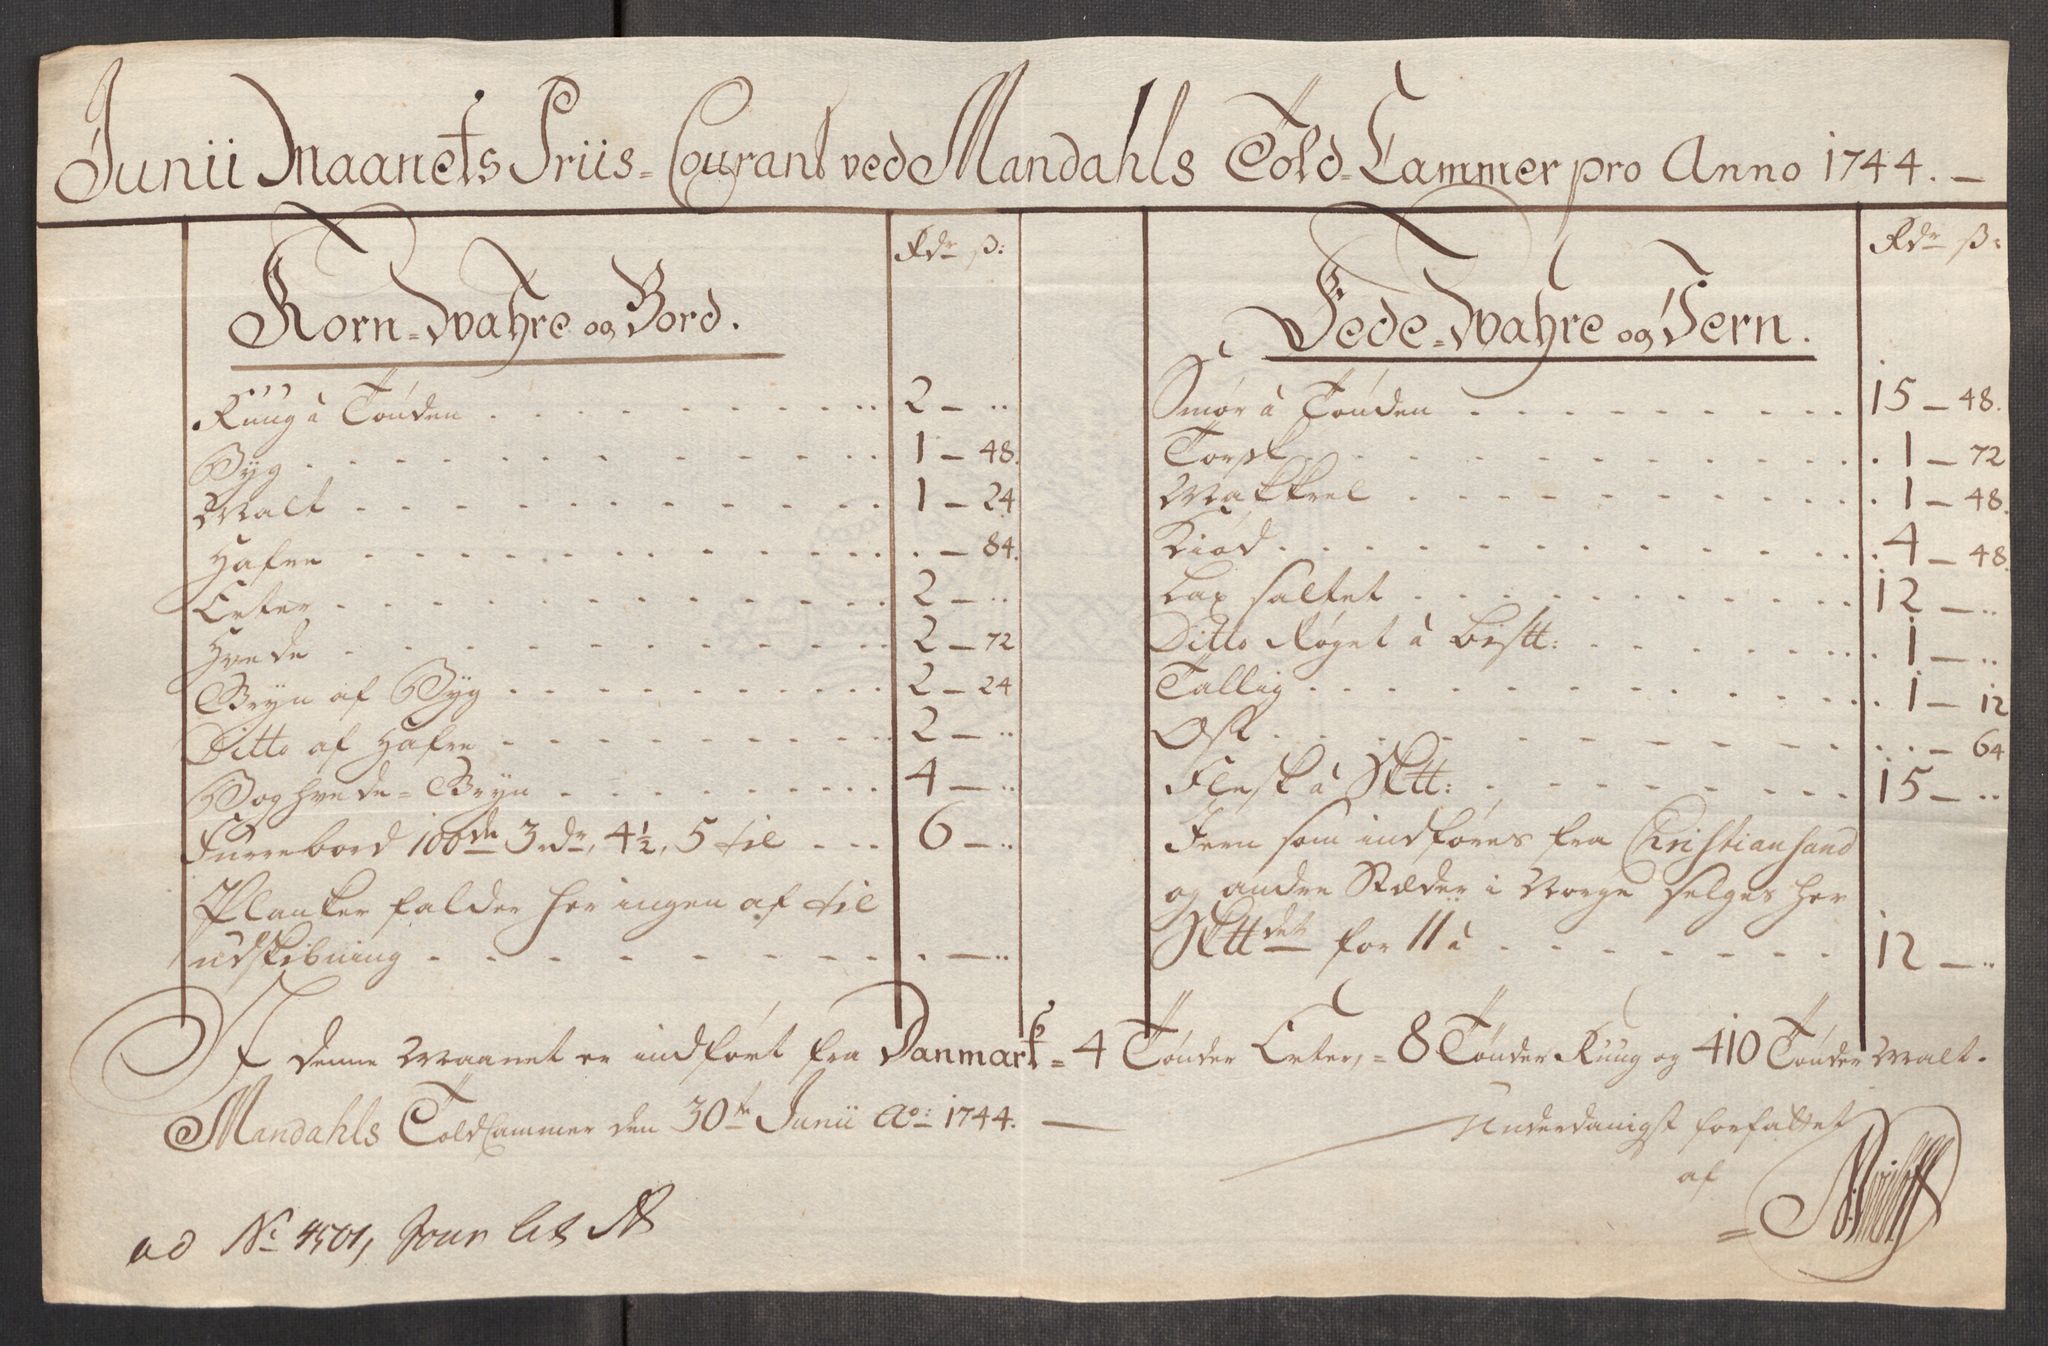 Junii Maanets Priis=Courant ved Mandahls Told=Cammer pro Anno 1744. —
Korn=Wahre og Bord.
Rdr ß:
Ruug à Tønden 2 — ..
Byg 1 — 48.
Malt 1 — 24
Hafre . — 84.
Erter 2 — ..
Hvede 2 — 72
Gryn af Byg 2 — 24
Ditto af Hafre 2 — ..
Boghvede=Gryn 4 — ..
Furrebord 100de 3 dr, 4½, 5 til 6 — ..
Planker falder her ingen af til
udskibning . — ..
Fede=Wahre og Jern.
Rdr ß:
Smør à Tønden 15 — 48.
Torsk 1 — 72
Makkrel 1 — 48.
Kiød 4 — 48.
Lax saltet 12 — ..
Ditto Røget à Bistt: 1 — ..
Tallig 1 — 12
Ost . — 64
Flesk à Sktt: 15 — ..
Jern som indføres fra Christiansand
og andre Stæder i Norge selges her
Skttdet for 11 à 12 — ..
I denne Maanet er indført fra Danmark = 4 Tønder Erter, = 8 Tønder Ruug og 410 Tønder Malt.
Mandahls ToldCammer den 30te Junii Ao: 1744. —
Underdanigst forfattet
af
ad No 4501, Jour Lit A